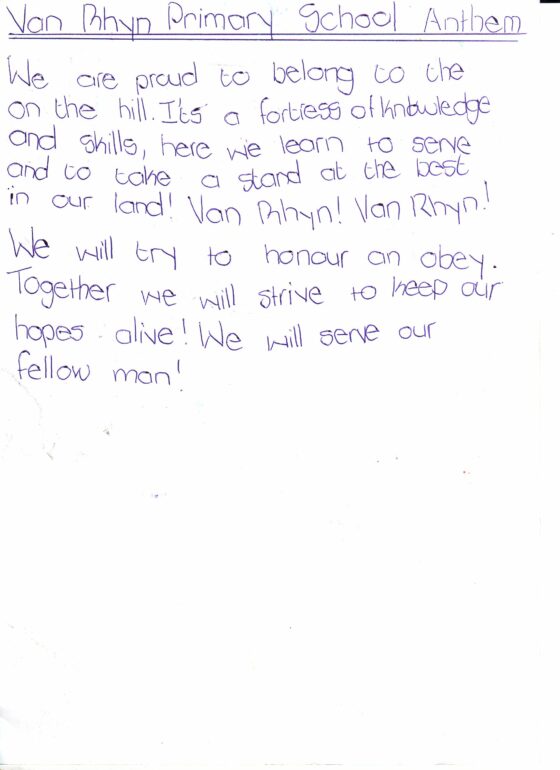 Van Rhyn Primary School Anthem
We are proud to belong to the
on the hill. Its a fortress of knowledge
and skills, here we learn to serve
and to take a stand at the best
in our land! Van Rhyn! Van Rhyn!
We will try to honour an obey.
Together we will strive to keep our
hopes alive! We will serve our
fellow man!